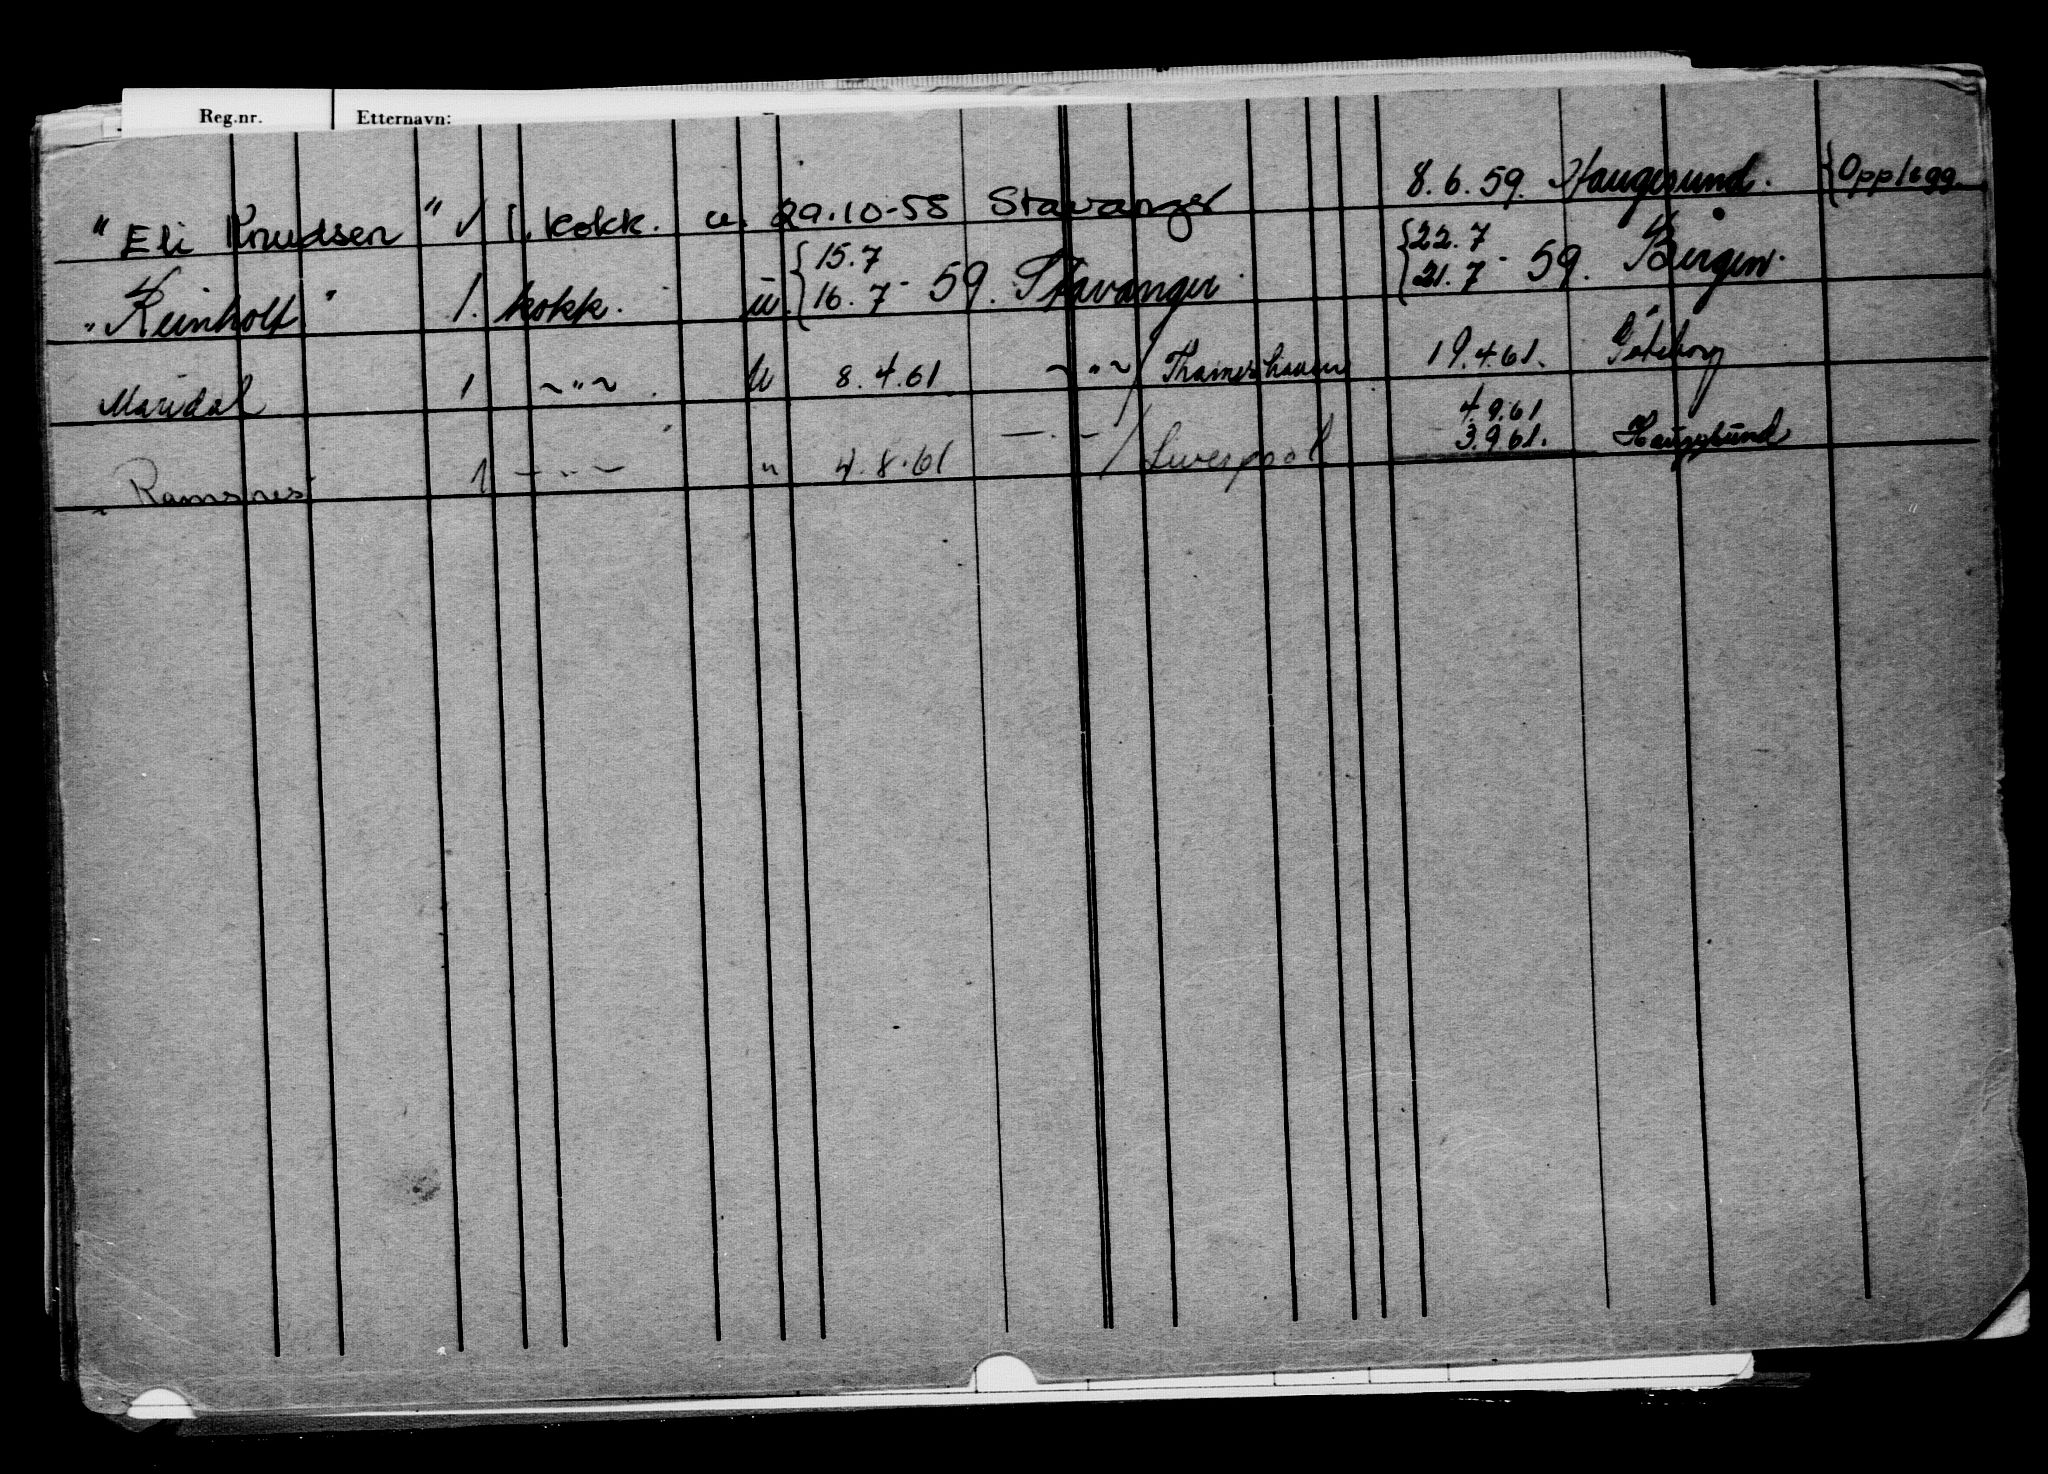 Reg.nr. Etternavn:
" Eli Knudsen " √ 1. kokk. u. 29.10-58 Stavanger 8.6.59. Haugesund. {Opplegg.
" Reinholt " 1. kokk. u. {15.7 16.7- 59. Stavanger. {22.7 21.7- 59. Bergen.
Maridal 1 ~"~ u 8.4.61 ~"~ / Thamshavn 19.4.61. Göteborg
4.9.61
Ramsnes 1 —"— " 4.8.61 —"— / Liverpool 3.9.61. Haugesund